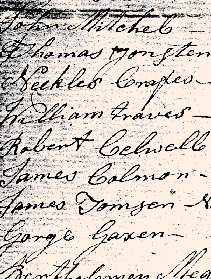 John Mitchel
Thomas Yongsten
Neckles Crapes -
William traves -
Robert Celwell
James Colmon -
James Tomsen - N
Gorge Gaxen -